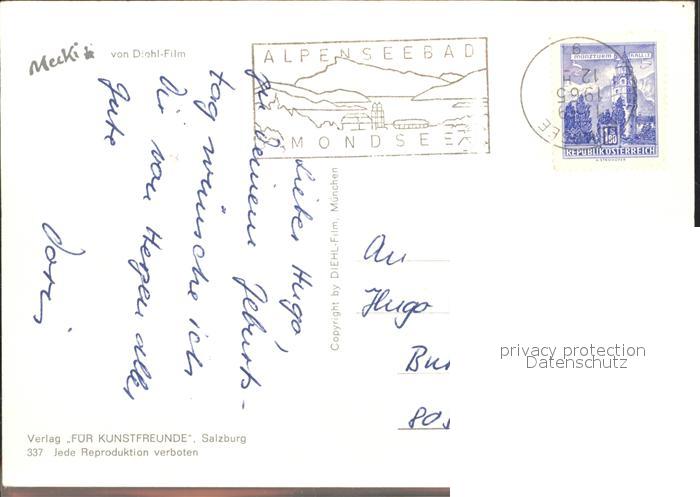 Mecki
von Diehl-Film
ALPENSEEBAD
MONDSEE
MÜNZTURM HALL I.T.
1.80
REPUBLIK ÖSTERREICH
12
1965
EE
Lieber Hugo,
zu Deinem Geburts-
tag wünsche ich
Dir von Herzen alles
Gute
Doris
Copyright by DIEHL-Film, München
An
Hugo
Bu
80
privacy protection
Datenschutz
Verlag „FÜR KUNSTFREUNDE", Salzburg
337 Jede Reproduktion verboten